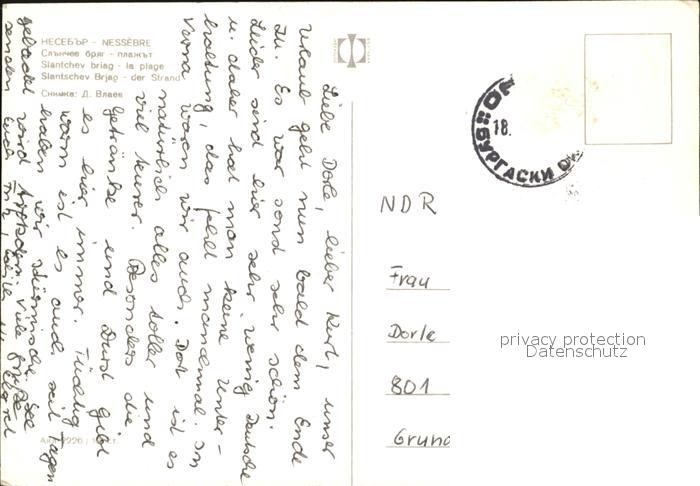 НЕСЕБЪР - NESSÈBRE
Слънчев бряг - плажът
Slantchev briag - la plage
Slantschev Brjag - der Strand
Снимка: Д. Влаев
Liebe Dorle, lieber Kurt, unser
Urlaub geht nun bald dem Ende
zu. Es war sonst sehr schön.
Leider sind hier sehr wenig Deutsche
u. daher hat man keine Unter-
haltung, das fehlt manchmal. In
Varna waren wir auch. Dort ist es
natürlich alles toller und
viel teurer. Besonders die
Getränke und Durst gibt
es hier immer. Tüchtig
warm ist es auch, seit Tagen
haben wir stürmische See
gebadet wird trotzdem. Viele Grüße
senden Euch
18.
БУРГАСКИ
NDR
Frau
Dorle
801
Grund
privacy protection
Datenschutz